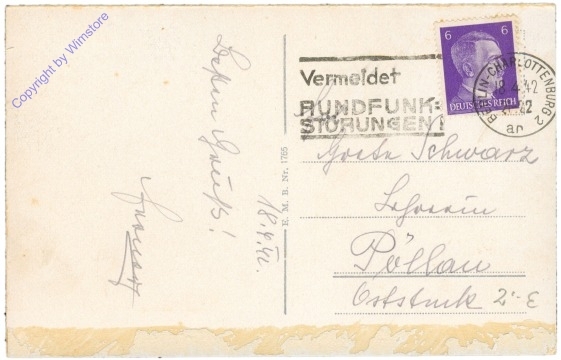 Copyright by Wimstore
Besten Gruß!
18.4.42.
E. M. B. Nr. 1765
Vermeidet
RUNDFUNK-
STÖRUNGEN!
6 6
DEUTSCHES REICH
BERLIN-CHARLOTTENBURG 2
18.4.42
ap
Grete Schwarz
Lehrerin
Pöllau
Oststmk